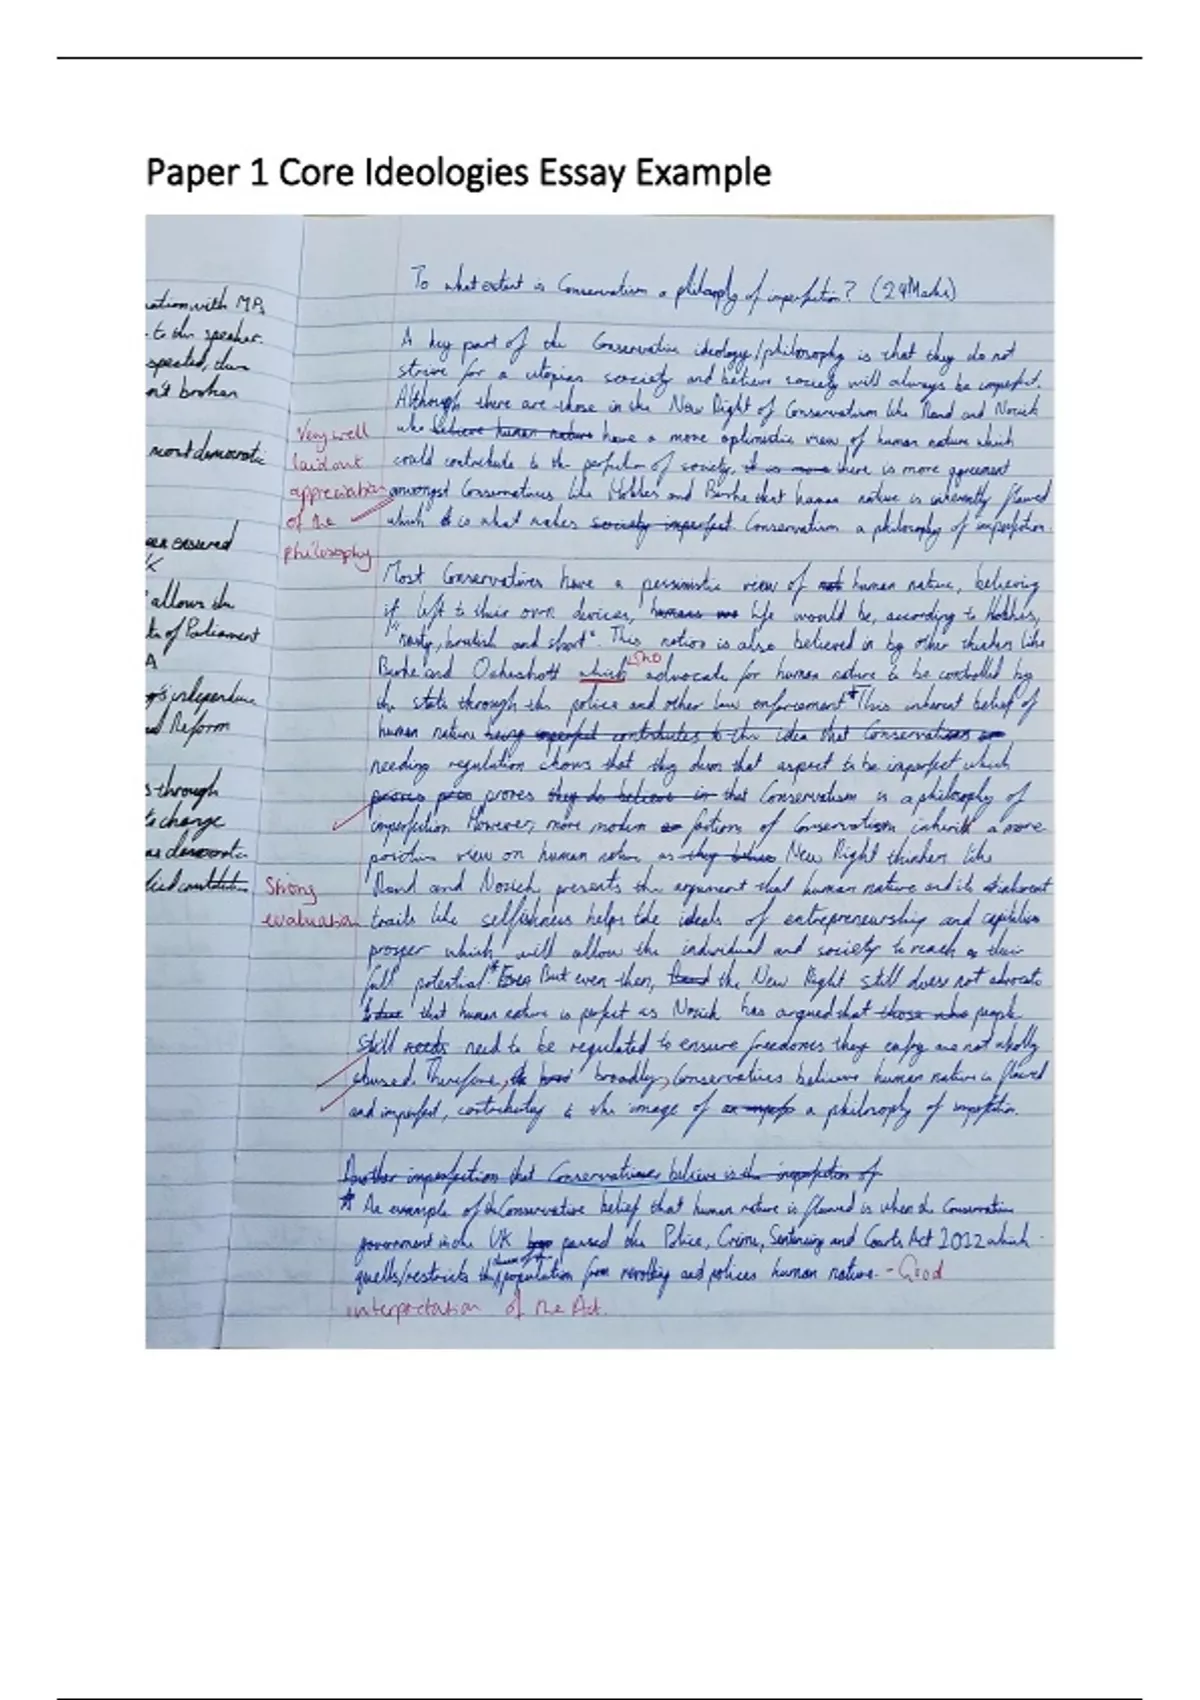 Paper 1 Core Ideologies Essay Example
To what extent is Conservatism a philosophy of imperfection? (24 Marks)
A key part of the Conservative ideology/philosophy is that they do not
strive for a utopian society and believe society will always be imperfect.
Although there are those in the New Right of Conservatism like Rand and Nozick
who believe human nature have a more optimistic view of human nature which
could contribute to the perfection of society, it is more there is more agreement
amongst Conservatives like Hobbes and Burke that human nature is inherently flawed
which is what makes society imperfect Conservatism a philosophy of imperfection.
Very well
laid out
appreciation
of the
philosophy
Most Conservatives have a pessimistic view of human nature, believing
if left to their own devices, humans life would be, according to Hobbes,
"nasty, brutish and short". This notion is also believed in by other thinkers like
who
Burke and Oakeshott which advocate for human nature to be controlled by
the state through the police and other law enforcement* This inherent belief of
human nature being imperfect contributes to the idea that Conservatism
needing regulation shows that they deem that aspect to be imperfect which
proves they do believe in that Conservatism is a philosophy of
imperfection However, more modern factions of Conservatism inherit a more
positive view on human nature as they believe New Right thinkers like
Rand and Nozick presents the argument that human nature and its inherent
traits like selfishness helps the ideals of entrepreneurship and capitalism
prosper which will allow the individual and society to reach their
full potential.* Even But even then, the New Right still does not advocate
that human nature is perfect as Nozick has argued that those who people
still needs need to be regulated to ensure freedoms they enjoy are not wholly
abused. Therefore, broadly, Conservatives believe human nature is flawed
and imperfect, contributing to the image of a philosophy of imperfection.
Strong
evaluation
Another imperfection that Conservatives believe is the imperfection of
* An example of the Conservative belief that human nature is flawed is when the Conservative
government in the UK passed the Police, Crime, Sentencing and Courts Act 2022 which
quells/restricts the population from revolting and polices human nature. - Good
interpretation of the Act.
ation with MPs
to the speaker.
n't broken
most democratic
een ensured
allows the
of Parliament
A
's independence
Reform
s through
to change